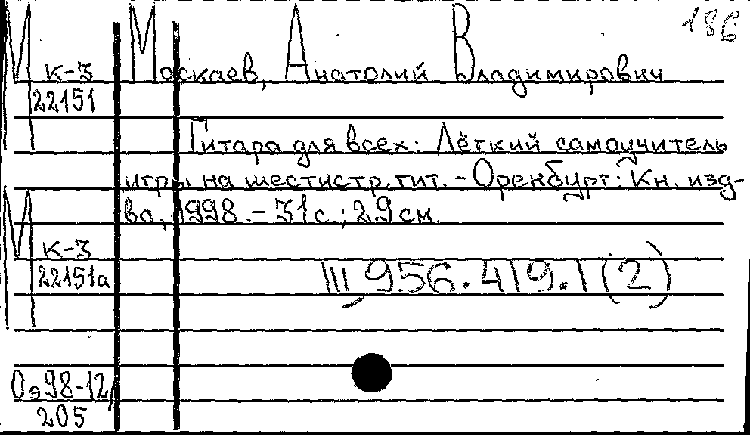 186
М Москаев, Анатолий Владимирович
к-3
22151
Гитара для всех: Лёгкий самоучитель
игры на шестистр. гит. - Оренбург: Кн. изд-
во, 1998. - 31 с.; 29 см.
М
к-3
22151а
III, 956.419.1 (2)
Оэ98-12/
205